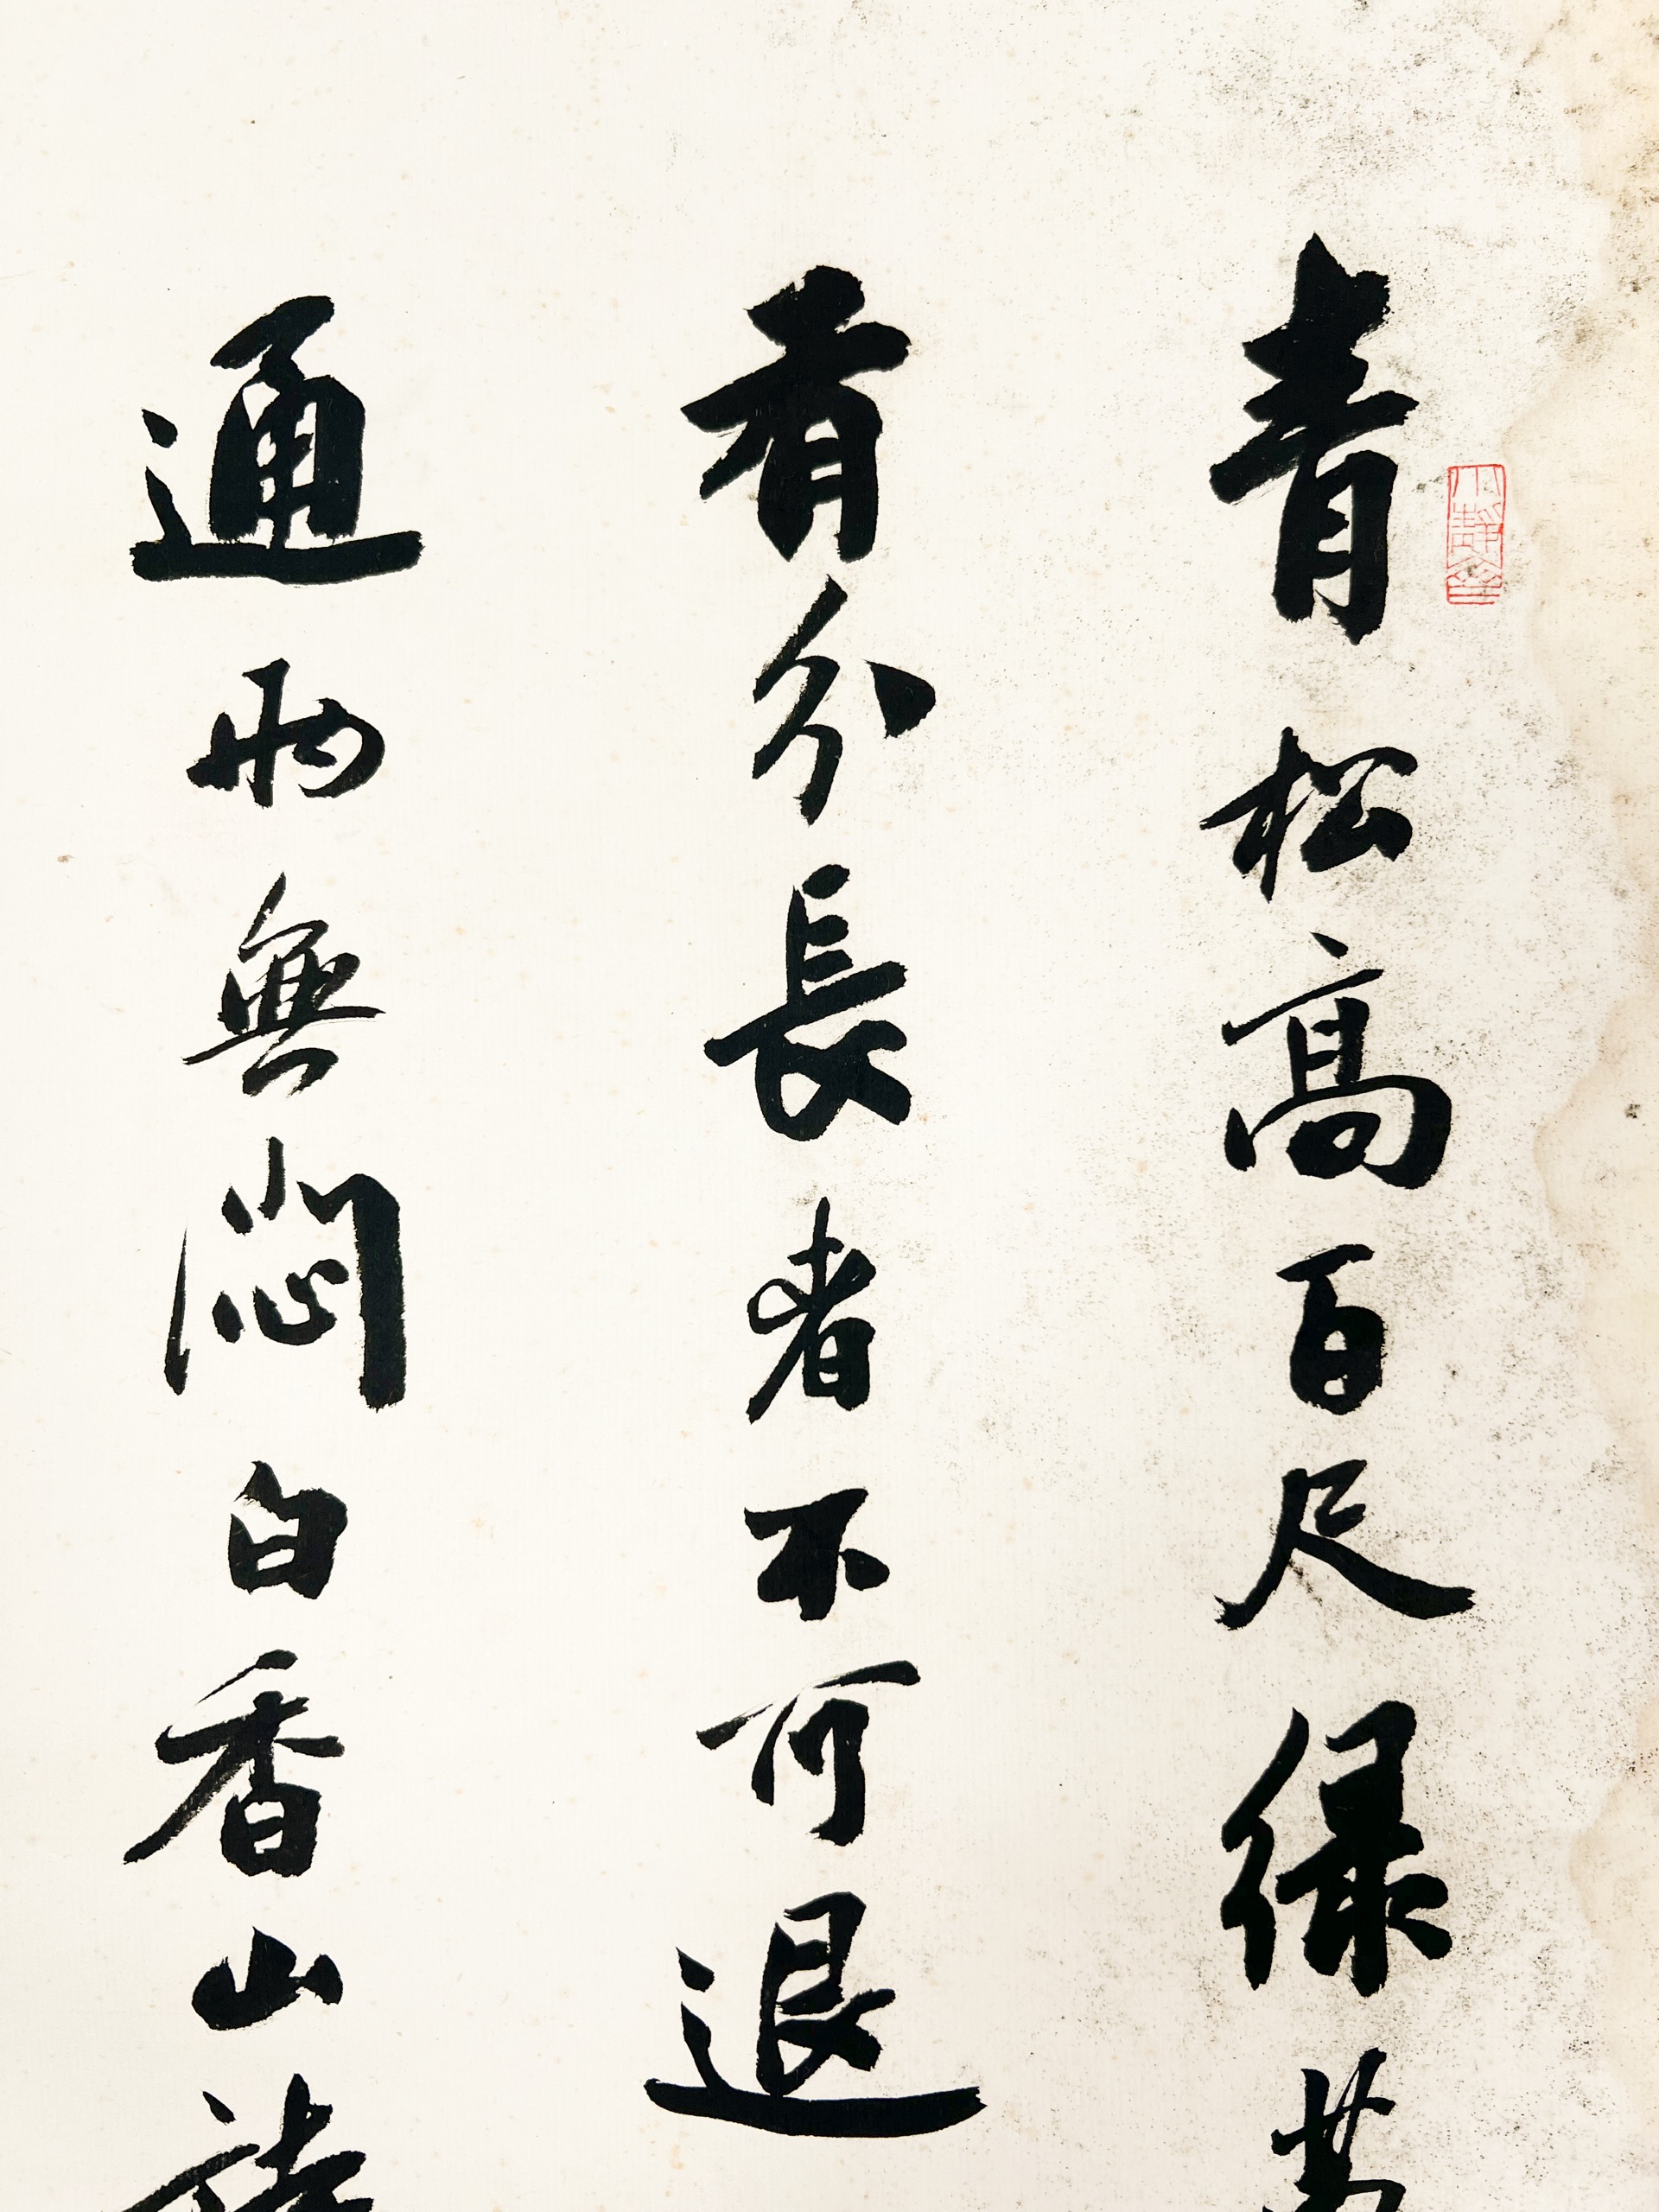 青松高百尺緑
有分長者不可退
通兩無悶白香山詩